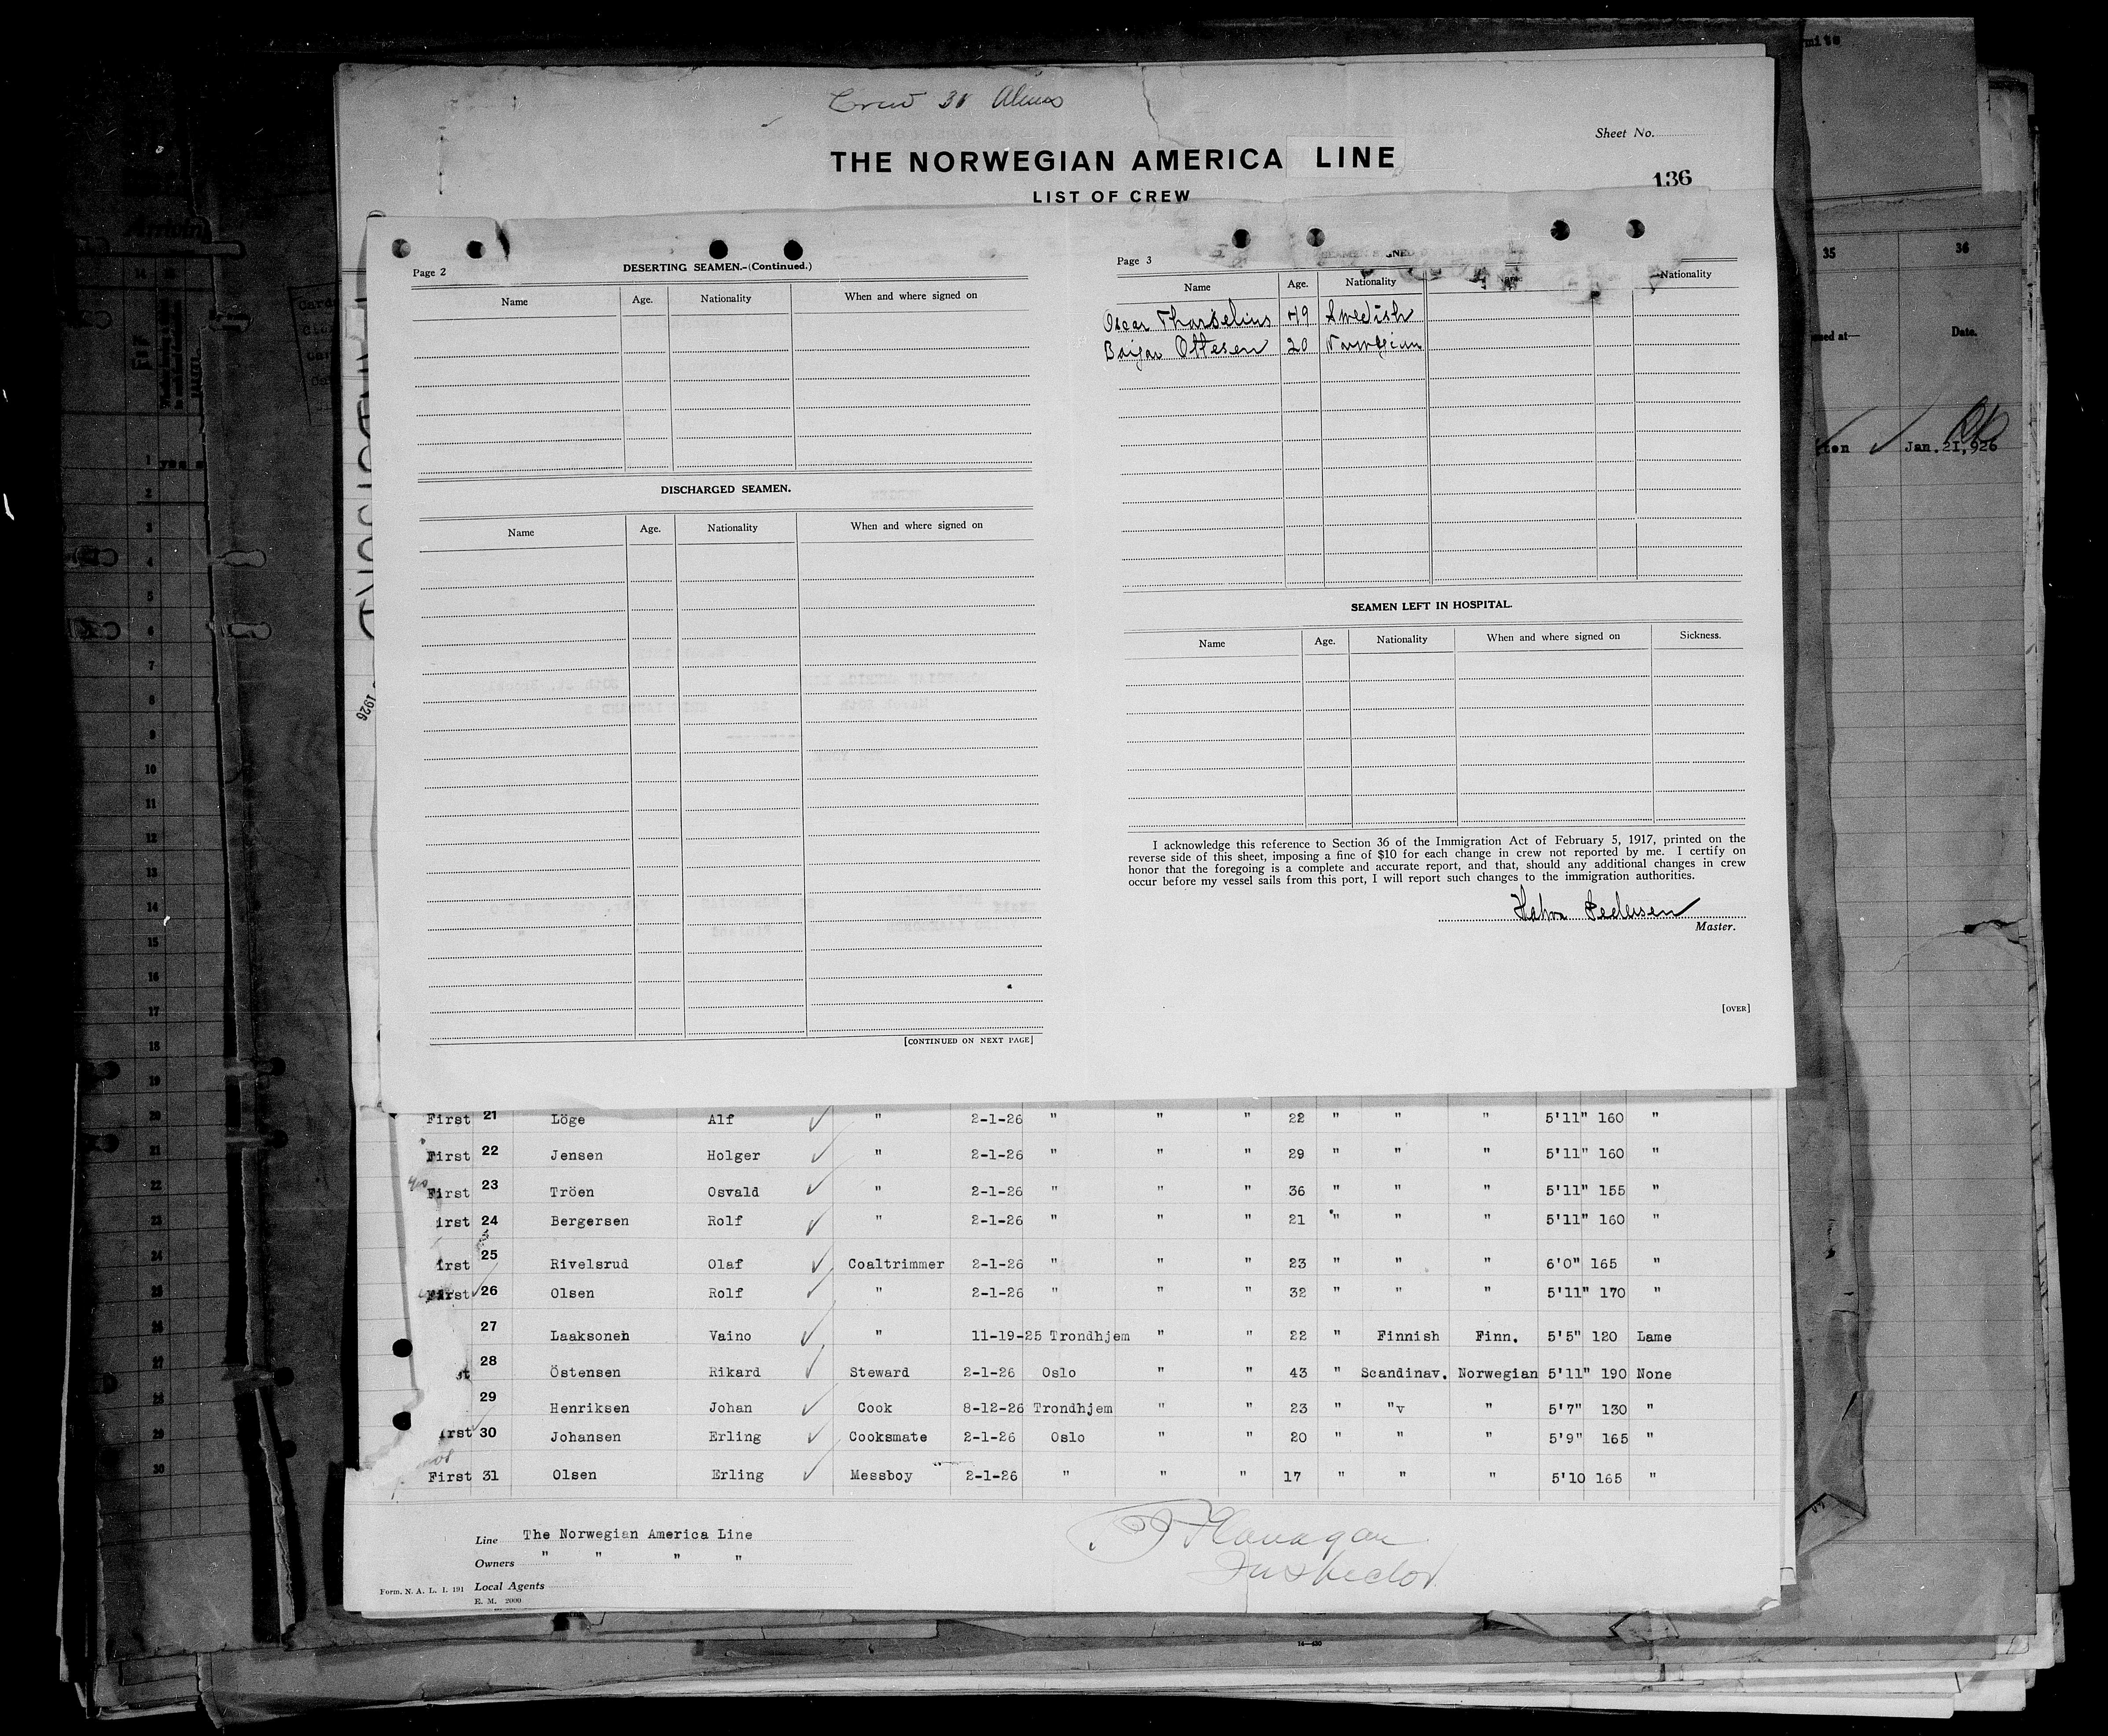 Crew 31 Aliens
Sheet No.
THE NORWEGIAN AMERICA LINE
136
LIST OF CREW
Page 2
DESERTING SEAMEN.-(Continued.)
Name Age. Nationality When and where signed on
DISCHARGED SEAMEN.
Name Age. Nationality When and where signed on
[CONTINUED ON NEXT PAGE]
Page 3
Name Age. Nationality Name Nationality
Oscar 49 Swedish
Ottesen 20 Norwegian
SEAMEN LEFT IN HOSPITAL.
Name Age. Nationality When and where signed on Sickness.
I acknowledge this reference to Section 36 of the Immigration Act of February 5, 1917, printed on the
reverse side of this sheet, imposing a fine of $10 for each change in crew not reported by me. I certify on
honor that the foregoing is a complete and accurate report, and that, should any additional changes in crew
occur before my vessel sails from this port, I will report such changes to the immigration authorities.
Pedersen
Master.
[OVER]
First 21 Löge Alf " 2-1-26 " " " 22 " " " 5'11" 160 "
First 22 Jensen Holger " 2-1-26 " " " 29 " " " 5'11" 160 "
First 23 Tröen Osvald " 2-1-26 " " " 36 " " " 5'11" 155 "
irst 24 Bergersen Rolf " 2-1-26 " " " 21 " " " 5'11" 160 "
irst 25 Rivelsrud Olaf Coaltrimmer 2-1-26 " " " 23 " " " 6'0" 165 "
First 26 Olsen Rolf " 2-1-26 " " " 32 " " " 5'11" 170 "
27 Laaksonen Vaino " 11-19-25 Trondhjem " " 22 " Finnish Finn. 5'5" 120 Lame
st 28 Östensen Rikard Steward 2-1-26 Oslo " " 43 " Scandinav. Norwegian 5'11" 190 None
29 Henriksen Johan Cook 8-12-26 Trondhjem " " 23 " "v " 5'7" 130 "
irst 30 Johansen Erling Cooksmate 2-1-26 Oslo " " 20 " " " 5'9" 165 "
First 31 Olsen Erling Messboy 2-1-26 " " " 17 " " " 5'10 165 "
Line The Norwegian America Line
Owners " " " "
Form. N. A. L. 1. 191 Local Agents
E. M. 2000
Flanagan
Inspector
1926
35 36
Date.
Jan.21,926
1 yes
2
3
4
5
6
7
8
9
10
11
12
13
14
15
16
17
18
19
20
21
22
23
24
25
26
27
28
29
30